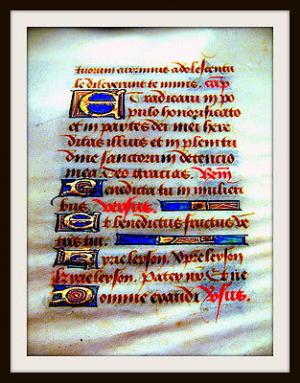 tuorum carminus adolescentu
le dilexerunt te nimis. cap
Et radicavi in po
pulo honorificato
et in partes dei mei here
ditas illius et in plenitu
dine sanctorum detencio
mea Deo gracias.
Benedicta tu in mulieri
bus. versus
Et benedictus fructus ve
tris tui.
Kyrie leyson. Xpire leyson
Kyrie leyson. Pater nr. Et ne
Domine exaudi